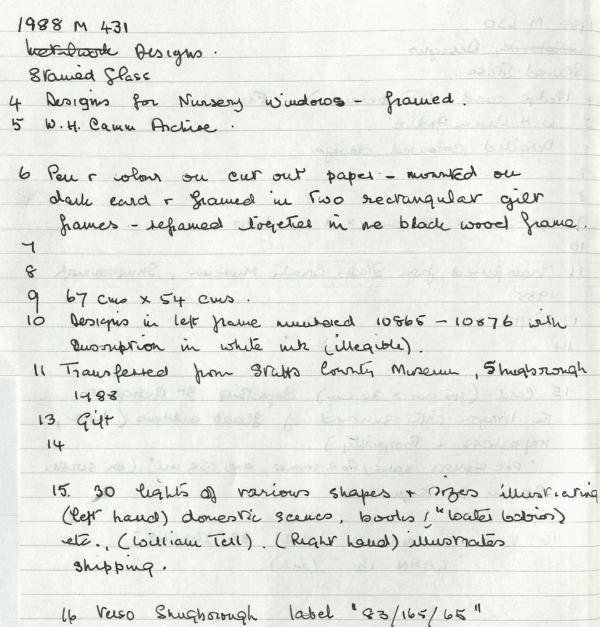 1988 M 431
Metalwork Designs.
Stained Glass
4 Designs for Nursery Windows - framed.
5 W.H. Camm Archive.
6 Pen & colour on cut out paper - mounted on
dark card & framed in two rectangular gilt
frames - reframed together in one black wood frame.
7
8
9 67 cms x 54 cms.
10 Designs in left frame numbered 10865 - 10876 with
inscription in white ink (illegible).
11 Transferred from Staffs County Museum, Shugborough
1988
13 Gift
14
15. 30 lights of various shapes & sizes illustrating
(left hand) domestic scenes, books ("Water Babies)
etc., (William Tell). (Right hand) illustrates
shipping.
16 Verso Shugborough label "83/165/65"